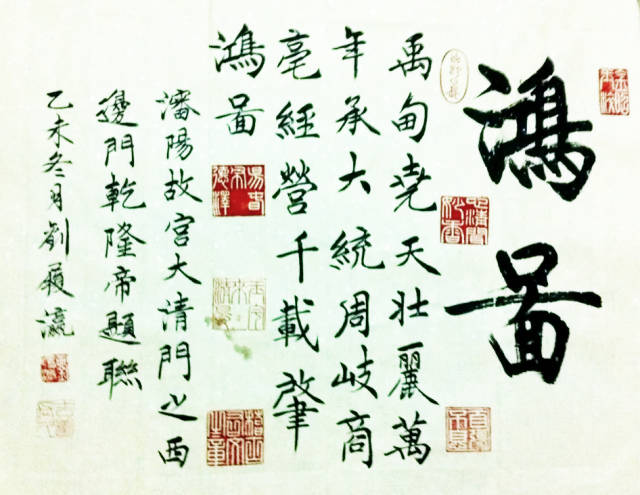 鴻啚
禹甸堯天壯麗萬
年承大統周岐商
亳經營千載肇
鴻啚
瀋陽故宮大清門之西
邊門乾隆帝題聯
乙未冬月劉瀛